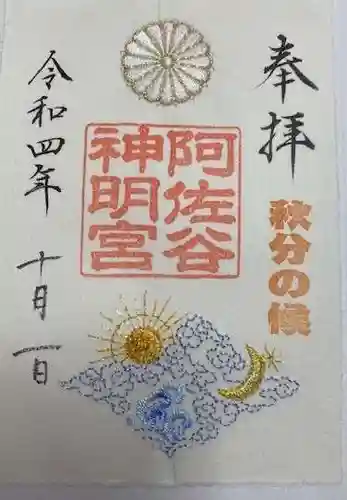 奉拝
秋分の候
阿佐谷
神明宮
令和四年 十月一日